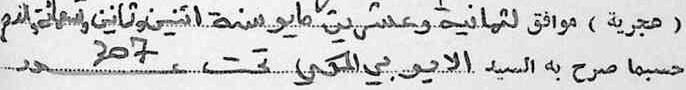 ( هجرية ) موافق لثمانية وعشرين مايو سنة اثنين وثمانين وتسعمائة والف
حسبما صرح به السيد الايوبي المكي تحت عدد 307